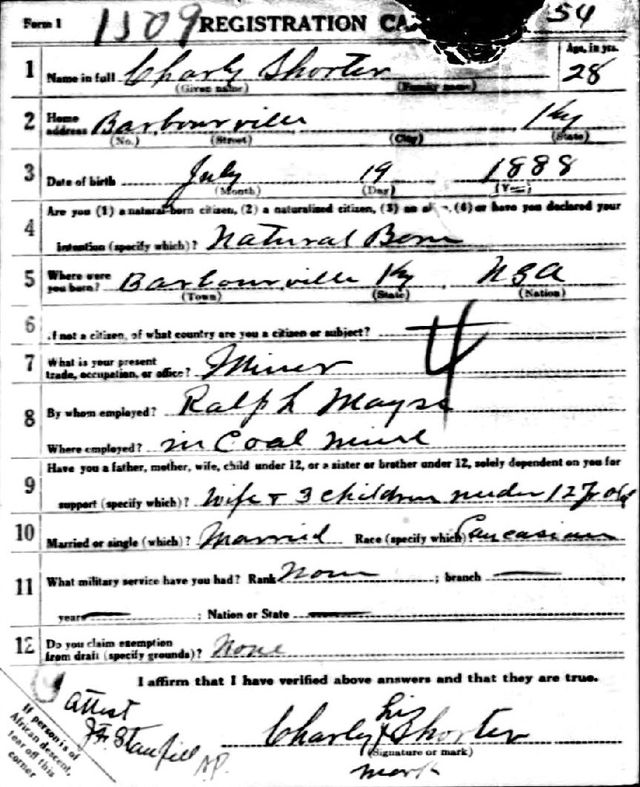 Form 1 1509 REGISTRATION CA 54
1 Name in full Charly Shorter Age, in yrs. 28
(Given name) (Family name)
2 Home address Barbourville Ky
(No.) (Street) (City) (State)
3 Date of birth July 19 1888
(Month) (Day) (Year)
4 Are you (1) a natural-born citizen, (2) a naturalized citizen, (3) an alien, (4) or have you declared your
intention (specify which)? Natural Born
5 Where were you born? Barbourville Ky USA
(Town) (State) (Nation)
6 If not a citizen, of what country are you a citizen or subject?
7 What is your present trade, occupation, or office? Miner 4
8 By whom employed? Ralph Mayse
Where employed? in Coal mine
9 Have you a father, mother, wife, child under 12, or a sister or brother under 12, solely dependent on you for
support (specify which)? Wife + 3 children under 12 yr old
10 Married or single (which)? Married Race (specify which) Caucasian
11 What military service have you had? Rank None ; branch
years ; Nation or State
12 Do you claim exemption from draft (specify grounds)? None
I affirm that I have verified above answers and that they are true.
attest
Stanfill
Charly his x Shorter
(Signature or mark)
mark
If person is of
African descent,
tear off this
corner